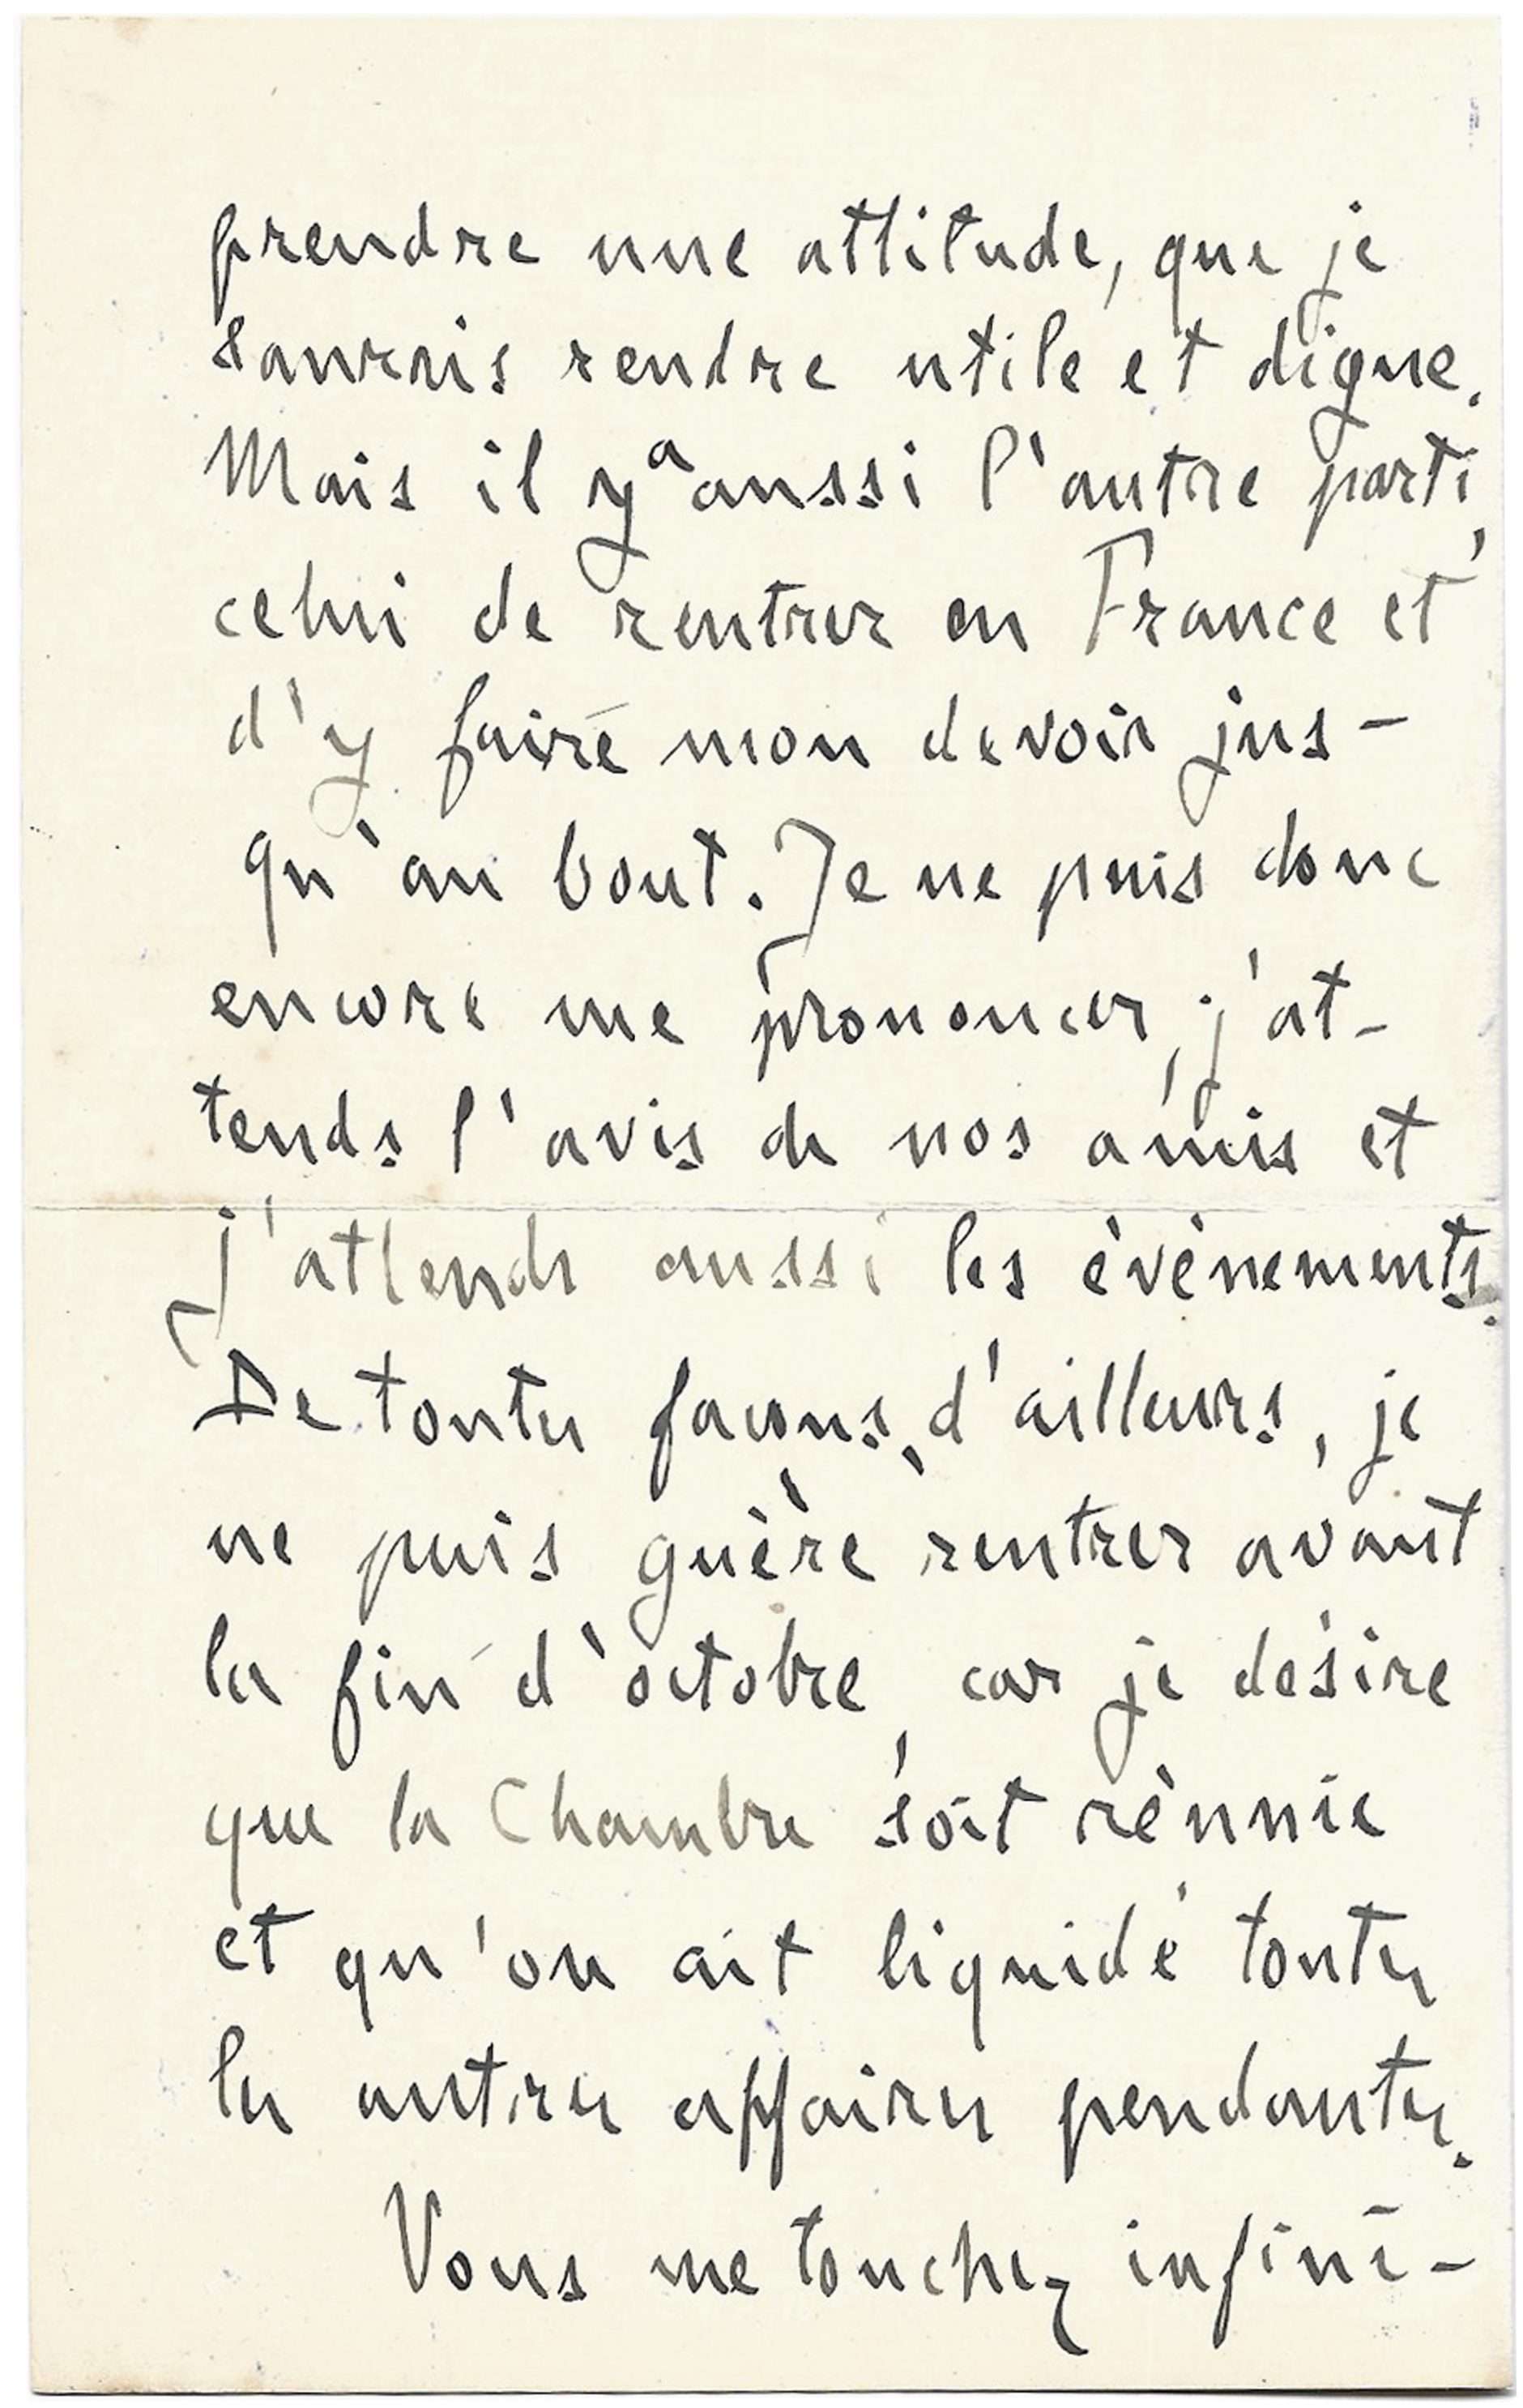 prendre une attitude, que je
saurais rendre utile et digne.
Mais il y a aussi l'autre parti,
celui de rentrer en France et
d'y faire mon devoir jus-
qu'au bout. Je ne puis donc
encore me prononcer, j'at-
tends l'avis de nos amis et
j'attends aussi les évènements.
De toutes façons, d'ailleurs, je
ne puis guère rentrer avant
la fin d'octobre, car je désire
que la Chambre soit réunie
et qu'on ait liquidé toutes
les autres affaires pendantes.
Vous me touchez infini-